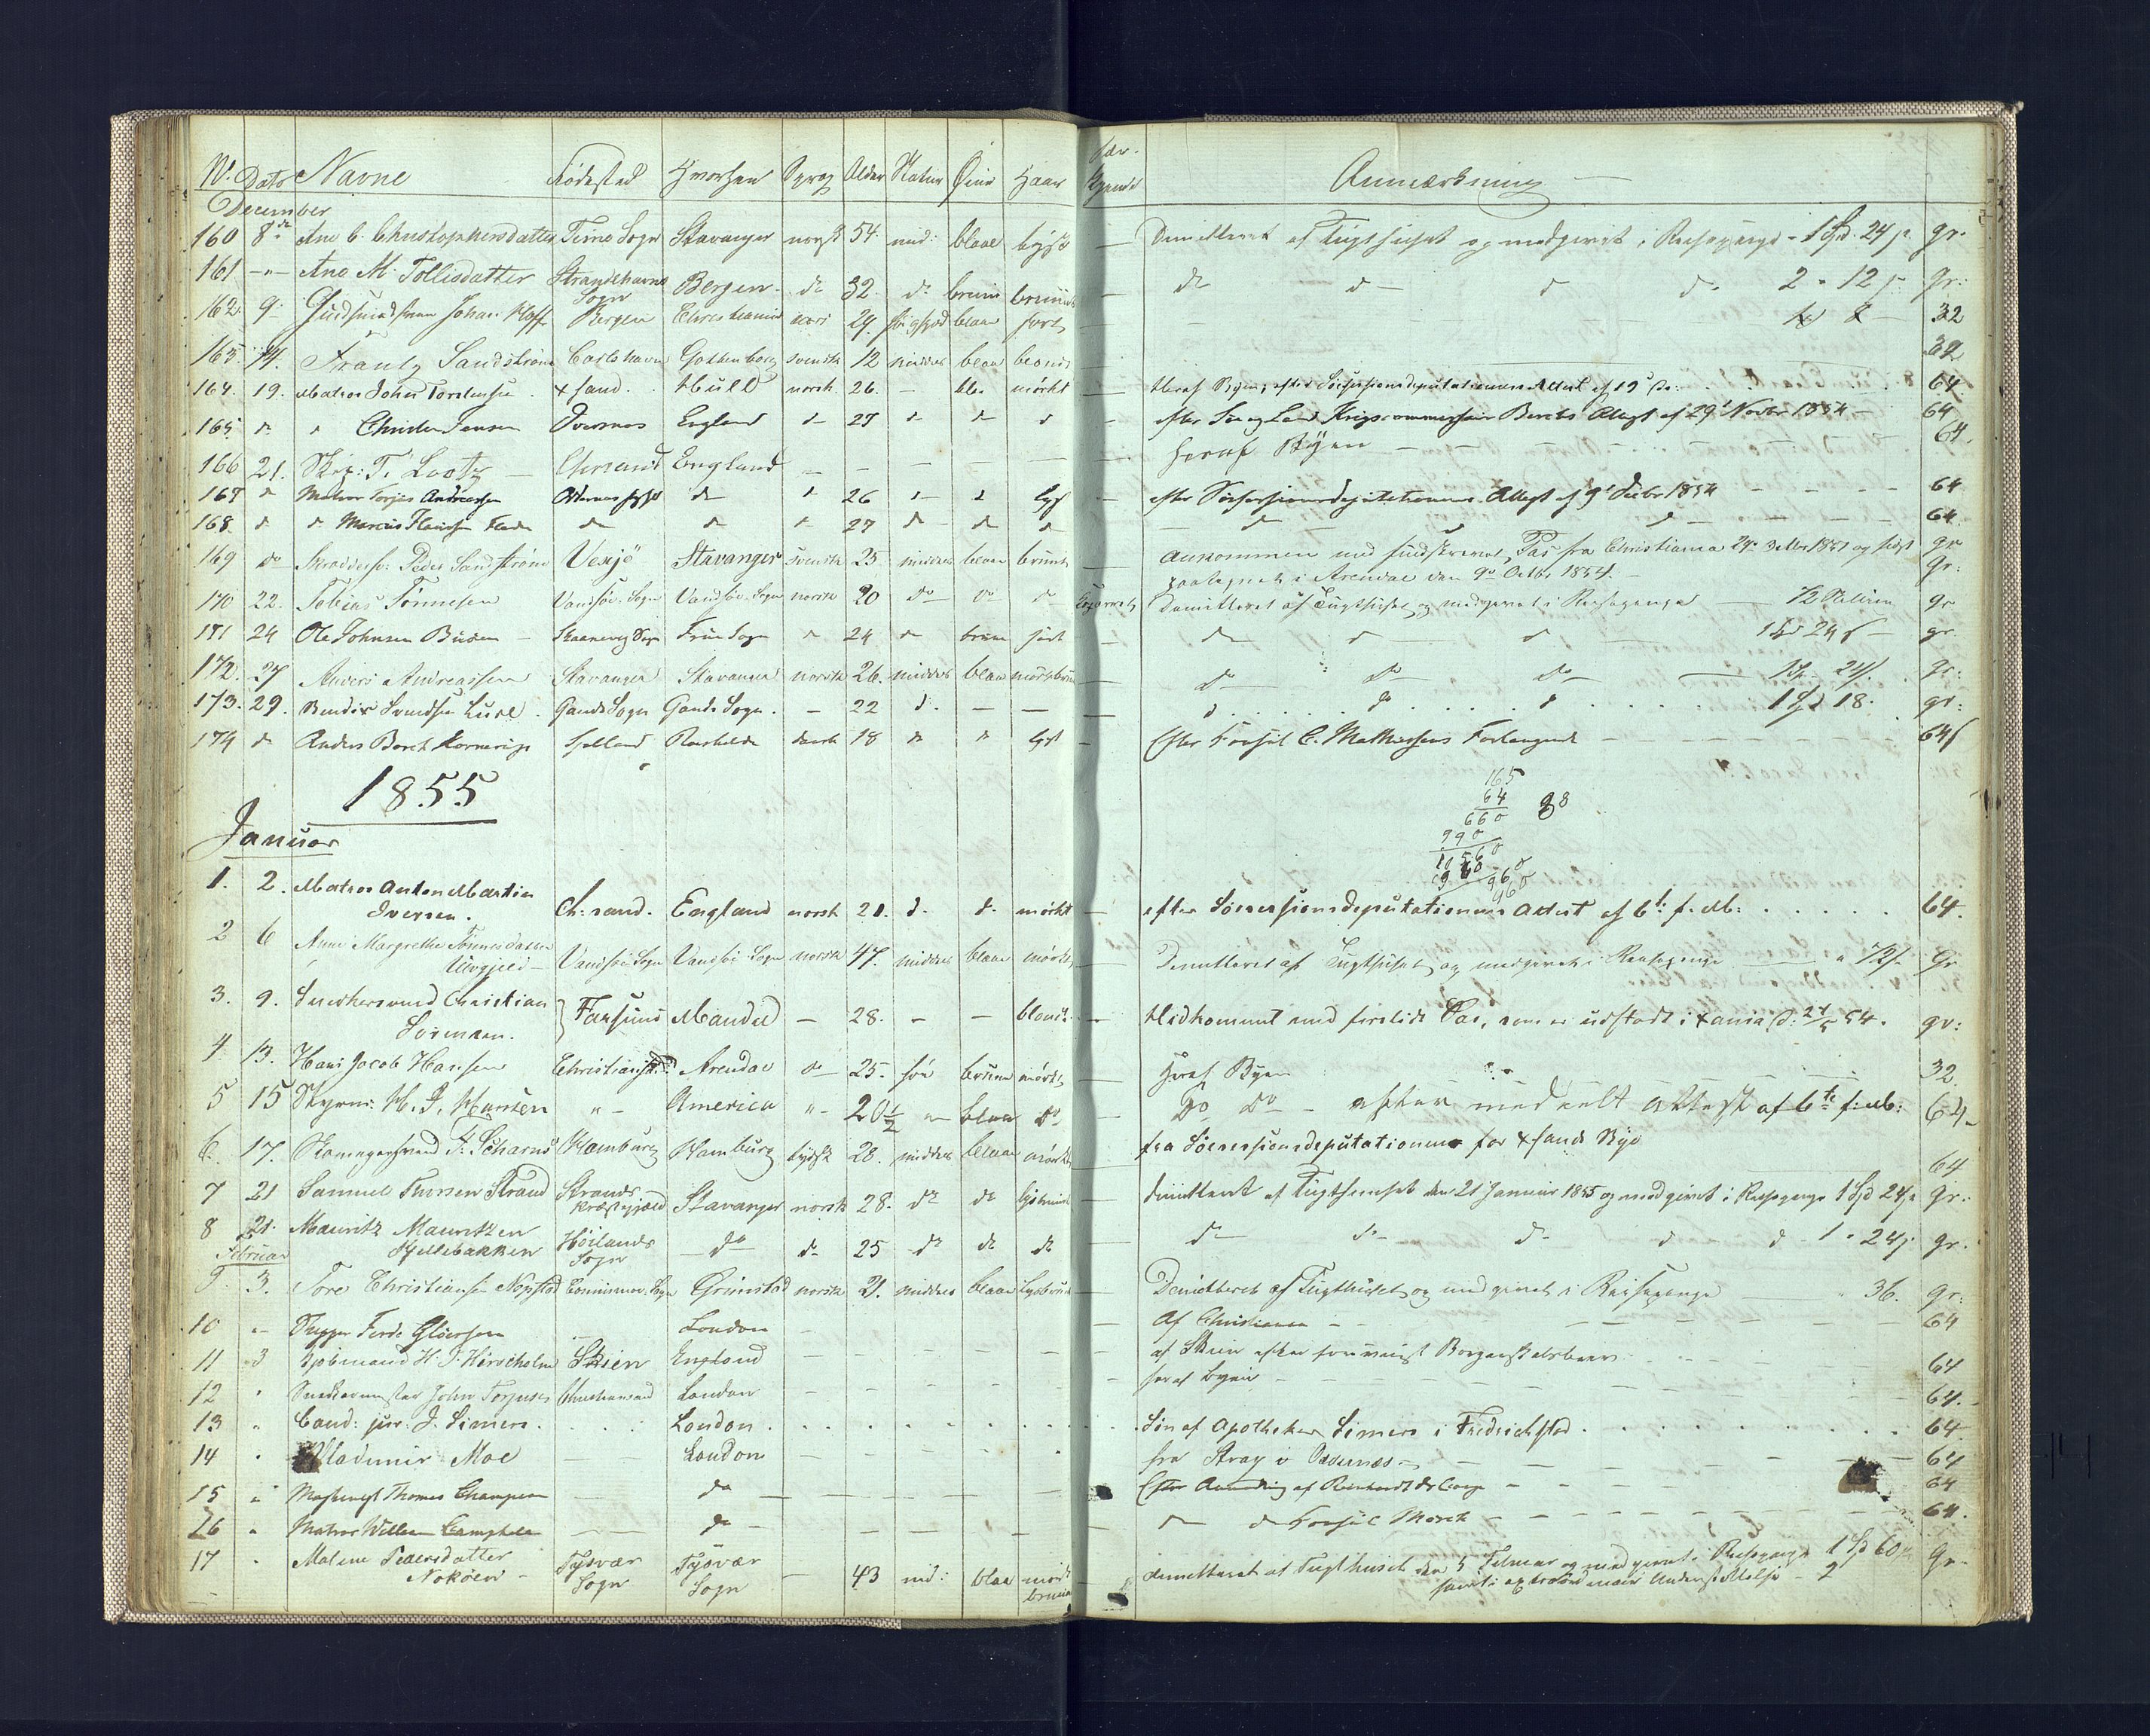 N. Dato Navne Fødested Hvorhen Sprog Alder Statur Øine Haar Anmærkning
December
160 8de Ane C. Christophersdatter Time Sogn Stavanger norsk 54 mid: blaae lyst — Demitteret af Tugthuset og medgivet i Reisepenge - 1 Spd. 24 s. gr.
161 -"- Ana M. Tollisdatter Strandehavns Sogn Bergen do 32 do brune bruunt — do do do do 2 " 12 s gr:
162 9 Johan Hoff Bergen Christiania 29 blaae sort 32
163 14. Frantz Sandstrøm Carlshavn Gothenborg svensk 12 middels blaae blondt 32
164. 19. Matros Johan Torstensen Xsand. Hull norsk 26. — bl. mørkt heraf Byen, efter Søesessionsdeputationens Attest af 19 ds: 64
165. do " Christen Jensen England do 27 do do do efter Søe og Land Krigscommissair Attest af 29 Novbr 1854 64
166 21. Skip: T. Lootz Chrsand England — — — — — heraf Byen — — 64.
167 do Matros Torjus Andreassen do do 26 lyst efter Søesessionsdeputationens Attest af 9 Decbr 1854 64
168. do do Marcus Hansen do do do 27 do do do do do 64
169 do Peder Sandstrøm Vexjø Stavanger svensk 25. middels blaae bruunt Ankommen med Pas fra Christiania 1851 og sidst gr
paategnet i Arendal den 9de Octbr 1854. — gr:
170 22. Tobias Tønnesen Vandsøe Sogn Vandsøe Sogn norsk 20 do do do Demitteret af Tugthuset og medgivet i Reisepenge — 72 Skilling gr
171 24 Ole Johnsen Sogn Sogn do 24 do brune sort do do do 1 Spd 24 s — gr.
172. 27 Andreassen Stavanger Stavanger norsk 26. middels blaae mørkbrun do do do 1 Sp. 24 s. gr:
173. 29. Bendix Svendsen Lure Gands Sogn Gands Sogn. — 22 d. — — — d do d 1 Spd 18. gr:
174 do Anders Borch Sjelland Roeskilde dansk 18 do do lyst — Efter Consul C. Mathiesens Forlangende 64 s
1855
165
64
660
990
10560
Januar
1. 2. Matros Anton Martin
Iversen. Ch:sand. England norsk 21. d. d. mørkt — efter Søesessionsdeputationens Attest af 6te f. M: 64.
2 6 Anne Margrethe Tønnesdatter
Vandsøe Sogn Vandsøe Sogn norsk 47. middels blaae mørkt Demitteret af Tugthuset og medgivet i Reisepenge — " 72 s gr
3. 9. Snedkersvend Christian
Sørensen. Farsund Mandal — 28. — — blondt. — Hidkommet med Pas, som er udstedt i Xania d: 24/5 54. gr:
4 13. Hans Jacob Hansen Arendal do 25. brune mørkt heraf Byen 32.
5 15 Styrm: H. J. Hansen "- America "- 20½ " blaae do Do Do - efter meddelt Attest af 6te f. M: 64
6. 17. F. Scharns Hamburg Hamburg tydsk 28. middels blaae mørkt fra Søesessionsdeputationen for Xsands Bye
64
7 21 Samuel Strand Strands Præstegjæld Stavanger norsk 28. do do lysbruunt Demitteret af Tugthuset den 21 Januar 1855 og medgivet i Reisepenge 1 Spd 24 s gr.
8 21. Mauritz Mauritzen
Kjellebakken Høilands Sogn — do do 25 do do do do do do d d 1 " 24 s. gr.
Februar
9 3. Tore Christiansen Sogn Grimstad norsk 21. middels blaae lysbruunt Demitteret af Tugthuset og medgivet i Reisepenge " 36. gr:
10 " London — Af Christiania 64
11 3 Kjøbmand H. J. Hirschholm Skien England — af Skien efter foreviist Borgerskabsbrev 64
12 " Snedkermester John Torjusen Christiansand London — heraf Byen 64.
13 " Cand: jur: J. Simers. London . Søn af Apotheker Simers i Fredrichstad. 64.
14 " Vladimir Moe London — fra Stray i Oddernæs 64
15 " Thomas Champion do — Efter Anmelding af Reinhardt 64
16 " Matros William Campbell do — do do Consul Mørch 64.
17 " Malene Pedersdatter
Tysvær Sogn Tysvær Sogn — 43 mid: blaae mørk bruunt demitteret af Tugthuset den 5 Februar og medgivet i Reisepenge 1 Spd 60 s gr.
samt i extraordinair Understøttelse - 2